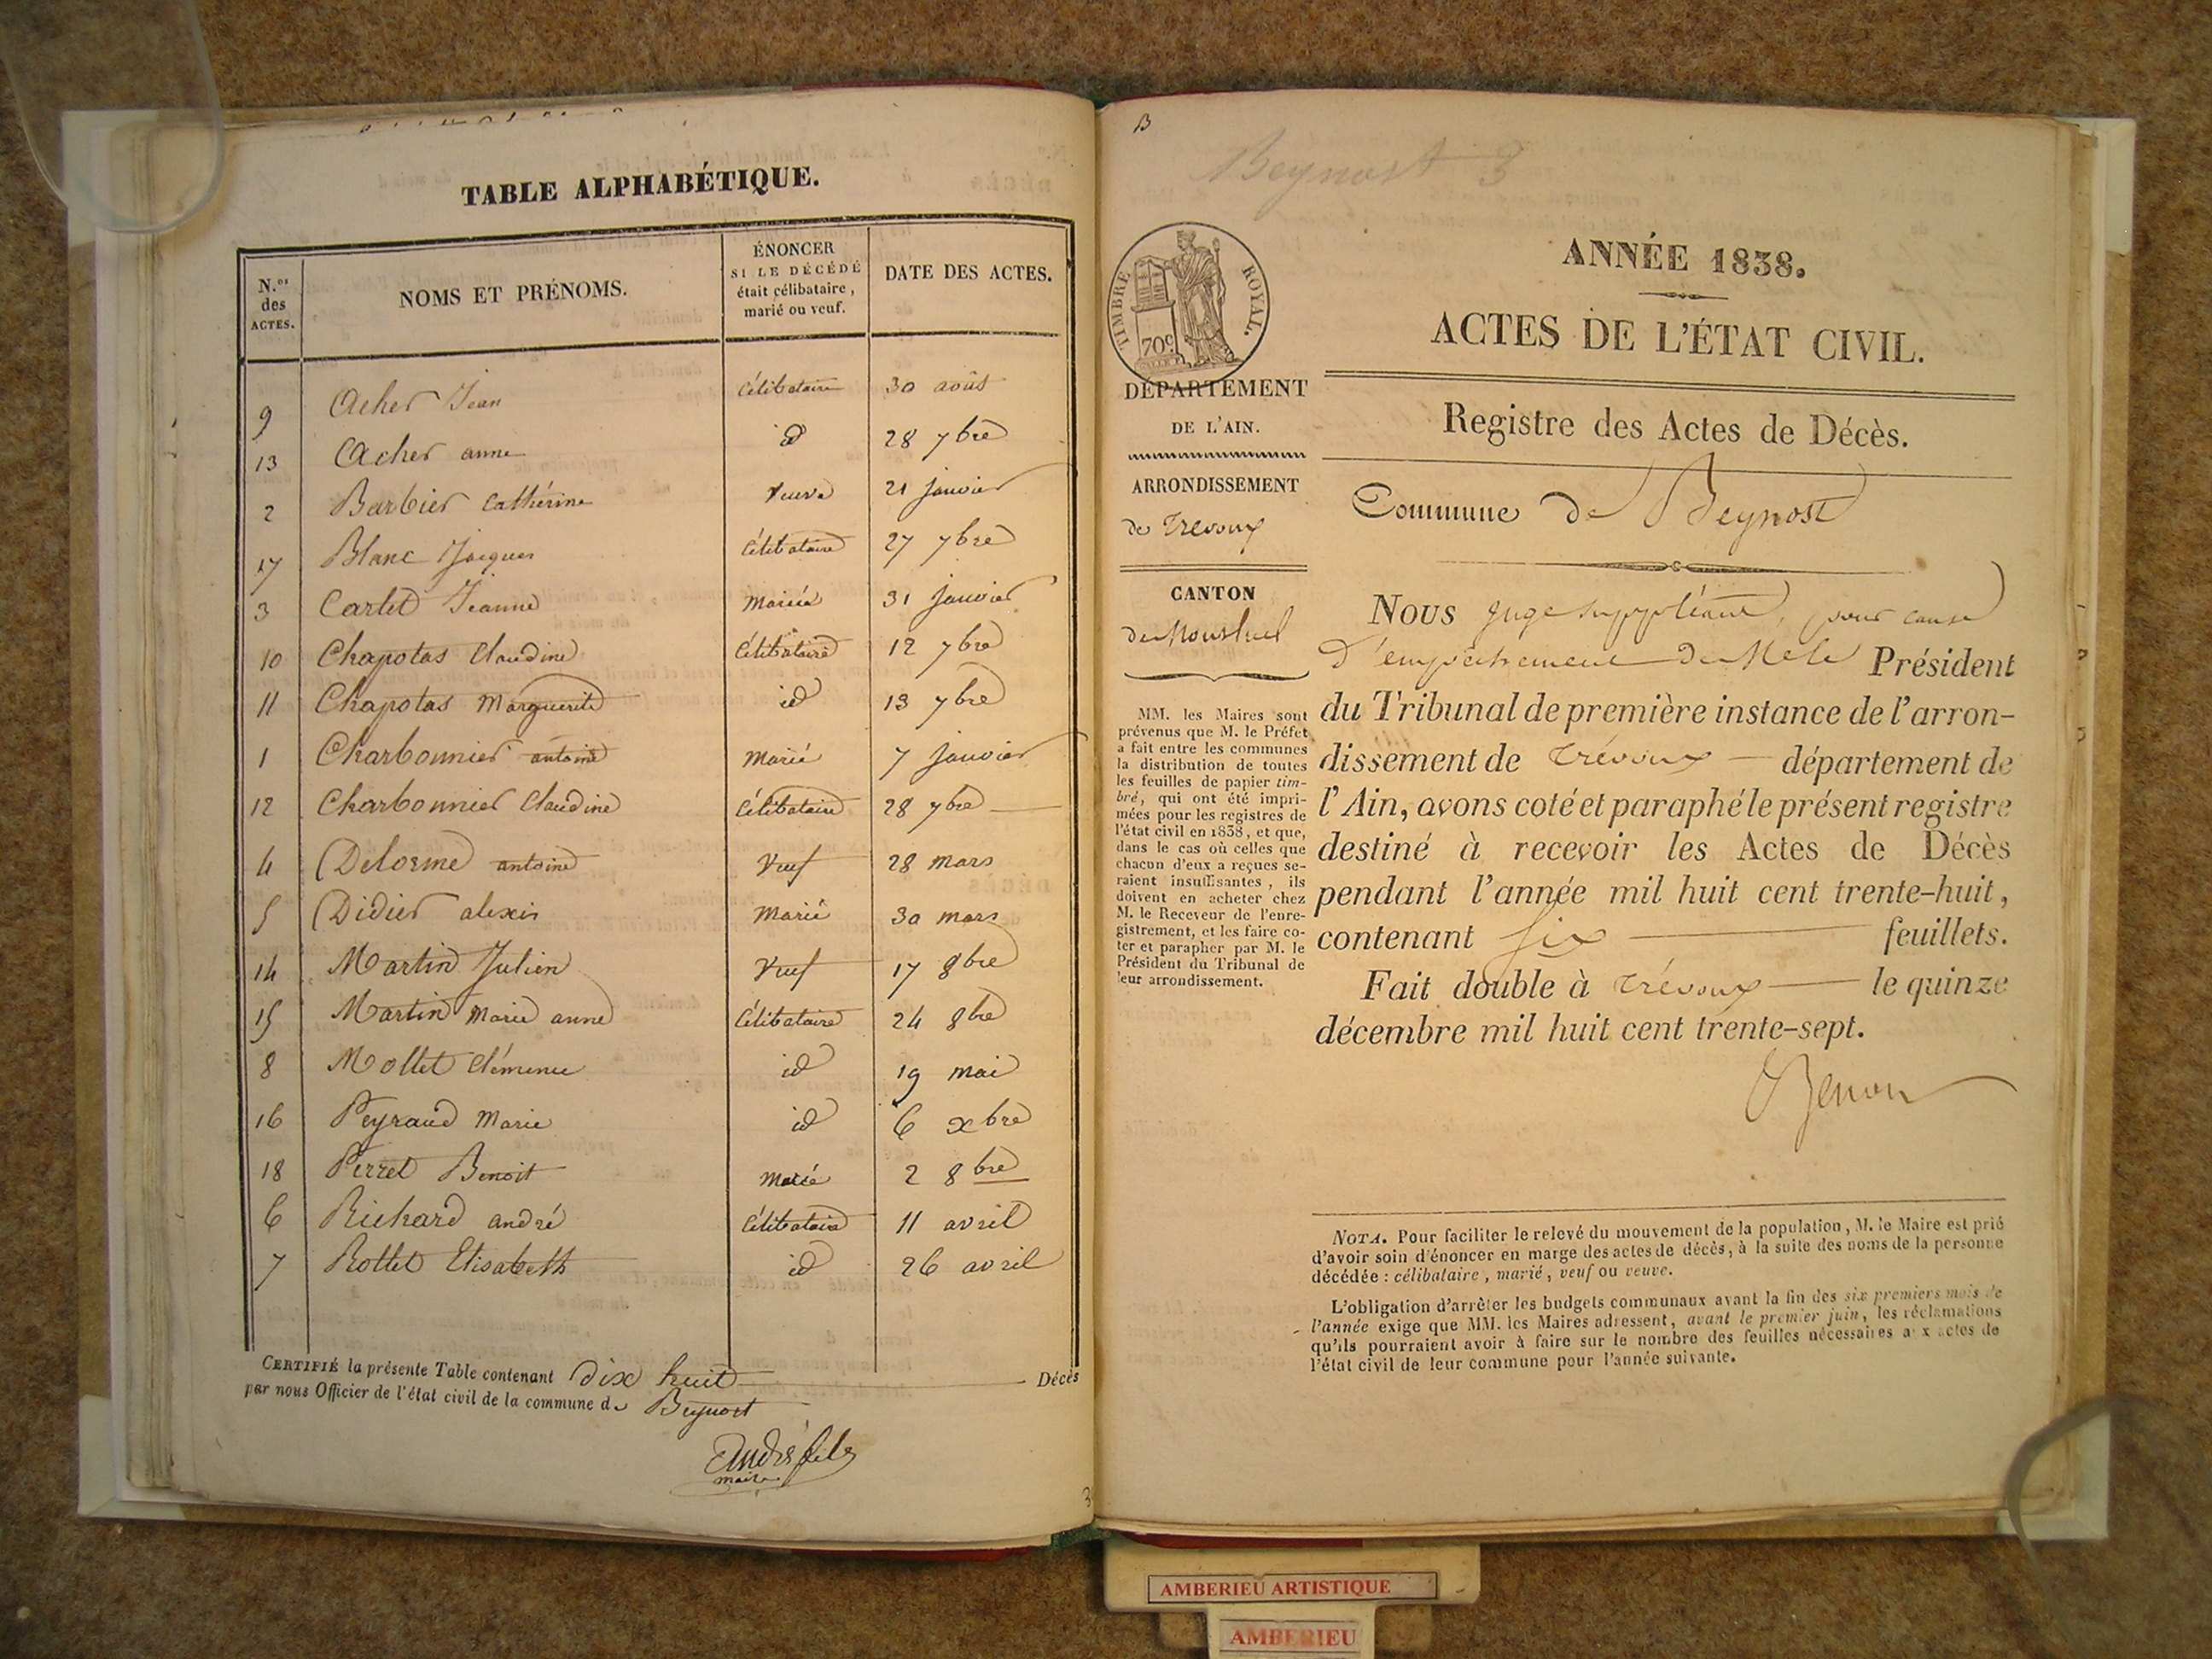 TABLE ALPHABÉTIQUE.
N.os des ACTES.
NOMS ET PRÉNOMS.
ÉNONCER SI LE DÉCÉDÉ était célibataire, marié ou veuf.
DATE DES ACTES.
9 Acher Jean Célibataire 30 août
13 Acher anne id 28 7bre
2 Barbier Cathérine Veuve 21 janvier
17 Blanc Jacques Célibataire 27 7bre
3 Carlet Jeanne Mariée 31 janvier
10 Chapotas Claudine Célibataire 12 7bre
11 Chapotas Marguerite id 13 7bre
1 Charbonnier antoine Marié 7 janvier
12 Charbonnier Claudine Célibataire 28 7bre
4 Delorme antoine Veuf 28 mars
5 Didier alexis Marié 30 mars
14 Martin Julien Veuf 17 8bre
15 Martin Marie anne Célibataire 24 8bre
8 Mollet Clémence id 19 mai
16 Peyraud Marie id 6 xbre
18 Perret Benoit Marié 2 8bre
6 Richard andré Célibataire 11 avril
7 Rollet Elisabeth id 26 avril
CERTIFIÉ la présente Table contenant dix huit Décès
par nous Officier de l'état civil de la commune de Beynost
André fils
maire
B
Beynost 3
TIMBRE ROYAL.
70c
DÉPARTEMENT
DE L'AIN.
ARRONDISSEMENT
de Trévoux
CANTON
de Montluel
MM. les Maires sont
prévenus que M. le Préfet
a fait entre les communes
la distribution de toutes
les feuilles de papier tim-
bré, qui ont été impri-
mées pour les registres de
l'état civil en 1838, et que,
dans le cas où celles que
chacun d'eux a reçues se-
raient insuffisantes, ils
doivent en acheter chez
M. le Receveur de l'enre-
gistrement, et les faire co-
ter et parapher par M. le
Président du Tribunal de
leur arrondissement.
ANNÉE 1838.
ACTES DE L'ÉTAT CIVIL.
Registre des Actes de Décès.
Commune de Beynost
Nous juge suppléant, pour cause
d'empêchement de Mr le Président
du Tribunal de première instance de l'arron-
dissement de Trévoux département de
l'Ain, avons coté et paraphé le présent registre
destiné à recevoir les Actes de Décès
pendant l'année mil huit cent trente-huit,
contenant six feuillets.
Fait double à Trévoux le quinze
décembre mil huit cent trente-sept.
NOTA. Pour faciliter le relevé du mouvement de la population, M. le Maire est prié
d'avoir soin d'énoncer en marge des actes de décès, à la suite des noms de la personne
décédée : célibataire, marié, veuf ou veuve.
L'obligation d'arrêter les budgets communaux avant la fin des six premiers mois de
l'année exige que MM. les Maires adressent, avant le premier juin, les réclamations
qu'ils pourraient avoir à faire sur le nombre des feuilles nécessaires aux actes de
l'état civil de leur commune pour l'année suivante.
AMBERIEU ARTISTIQUE
AMBERIEU